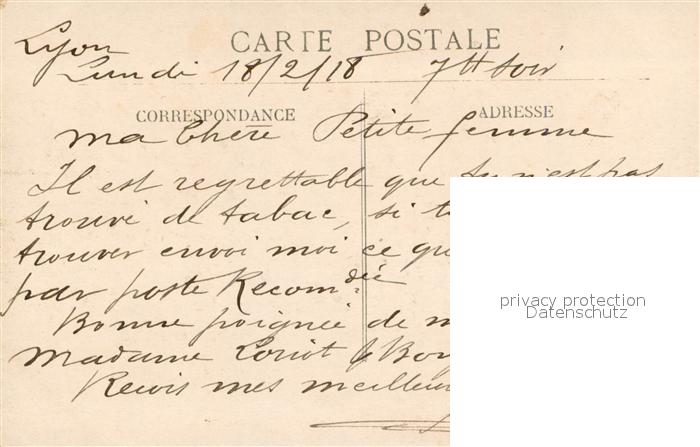 CARTE POSTALE
Lyon
Lundi 18/2/18 7H soir
CORRESPONDANCE
ADRESSE
Ma Chère Petite femme
Il est regrettable que tu n'est pas
trouvé de tabac, si t
trouver envoi moi ce que
par poste Recomdée
Bonne poignée de m
Madame Loriot & Bon
Recois mes meilleur
privacy protection
Datenschutz